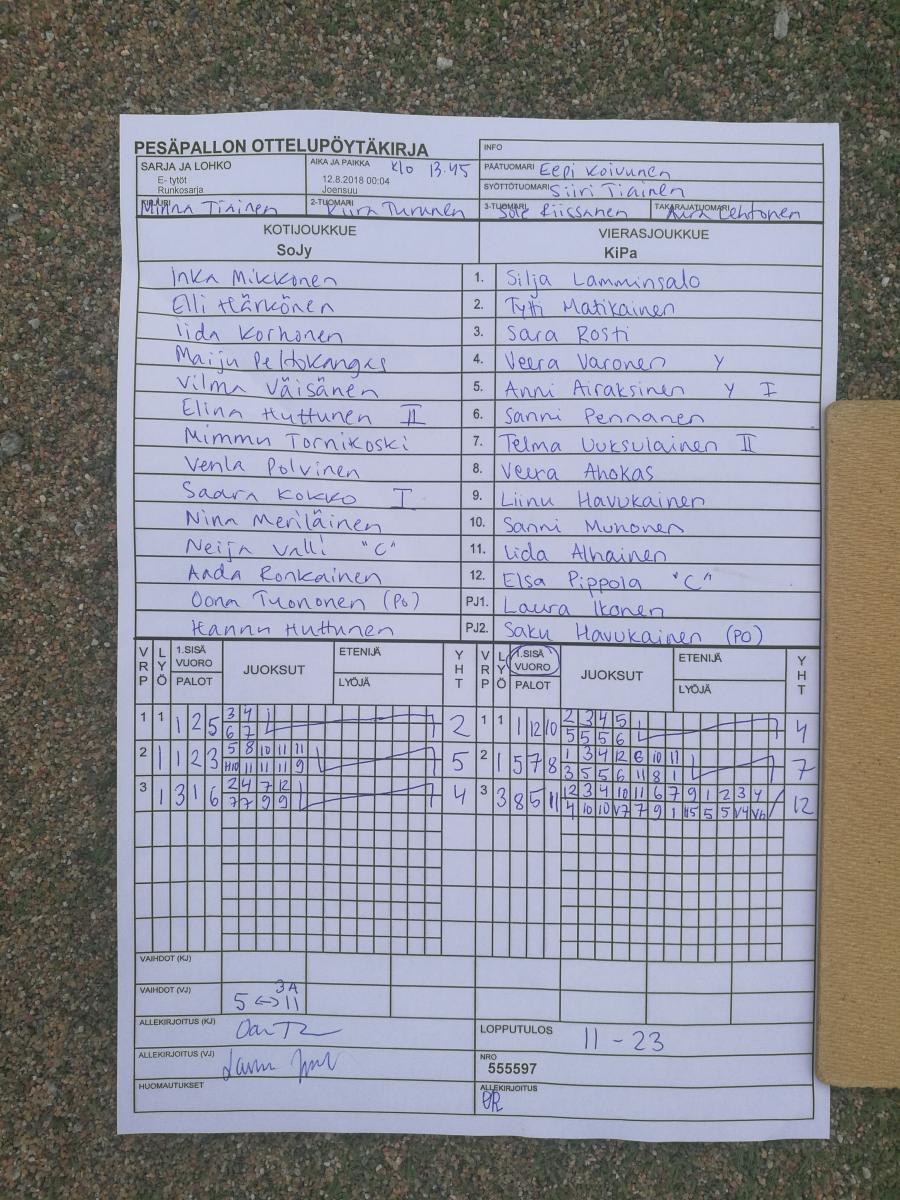 PESÄPALLON OTTELUPÖYTÄKIRJA
INFO
SARJA JA LOHKO
E- tytöt
Runkosarja
AIKA JA PAIKKA klo 13.45
12.8.2018 00:04
Joensuu
PÄÄTUOMARI Eepi Koivunen
SYÖTTÖTUOMARI Siiri Tiainen
KIRJURI Minna Tiainen
2-TUOMARI Kiira Turunen
3-TUOMARI Riissanen
TAKARAJATUOMARI Lehtonen
KOTIJOUKKUE
SoJy
VIERASJOUKKUE
KiPa
Inka Mikkonen 1. Silja Lamminsalo
Elli Härkönen 2. Tytti Matikainen
Iida Korhonen 3. Sara Rosti
Maiju Peltokangas 4. Veera Varonen Y
Vilma Väisänen 5. Anni Airaksinen Y I
Elina Huttunen II 6. Sanni Pennanen
Mimmu Tornikoski 7. Telma Uuksulainen II
Venla Polvinen 8. Veera Ahokas
Saara Kokko I 9. Liinu Havukainen
Nina Meriläinen 10. Sanni Munonen
Neija Valli "C" 11. Iida Alhainen
Aada Ronkainen 12. Elsa Pippola "C"
Oona Tuononen (PO) PJ1. Laura Ikonen
Hannu Huttunen PJ2. Saku Havukainen (PO)
VRP LYÖ 1.SISÄ VUORO PALOT JUOKSUT ETENIJÄ LYÖJÄ YHT VRP LYÖ 1.SISÄ VUORO PALOT JUOKSUT ETENIJÄ LYÖJÄ YHT
1 1 1 2 5 3 4 2 1 1 1 12 10 2 3 4 5 4
6 7 5 5 5 6
2 1 1 2 3 5 8 10 11 11 5 2 1 5 7 8 1 3 4 12 6 10 11 7
11 11 11 9 3 5 5 6 11 8 1
3 1 3 1 6 2 4 7 12 4 3 3 8 5 11 12 3 4 10 11 6 7 9 1 2 3 4 12
7 7 9 9 4 10 10 V7 7 9 1 5 5 V4
VAIHDOT (KJ)
VAIHDOT (VJ) 5 <-> 11 3A
ALLEKIRJOITUS (KJ)
LOPPUTULOS 11 - 23
ALLEKIRJOITUS (VJ)
NRO
555597
HUOMAUTUKSET
ALLEKIRJOITUS